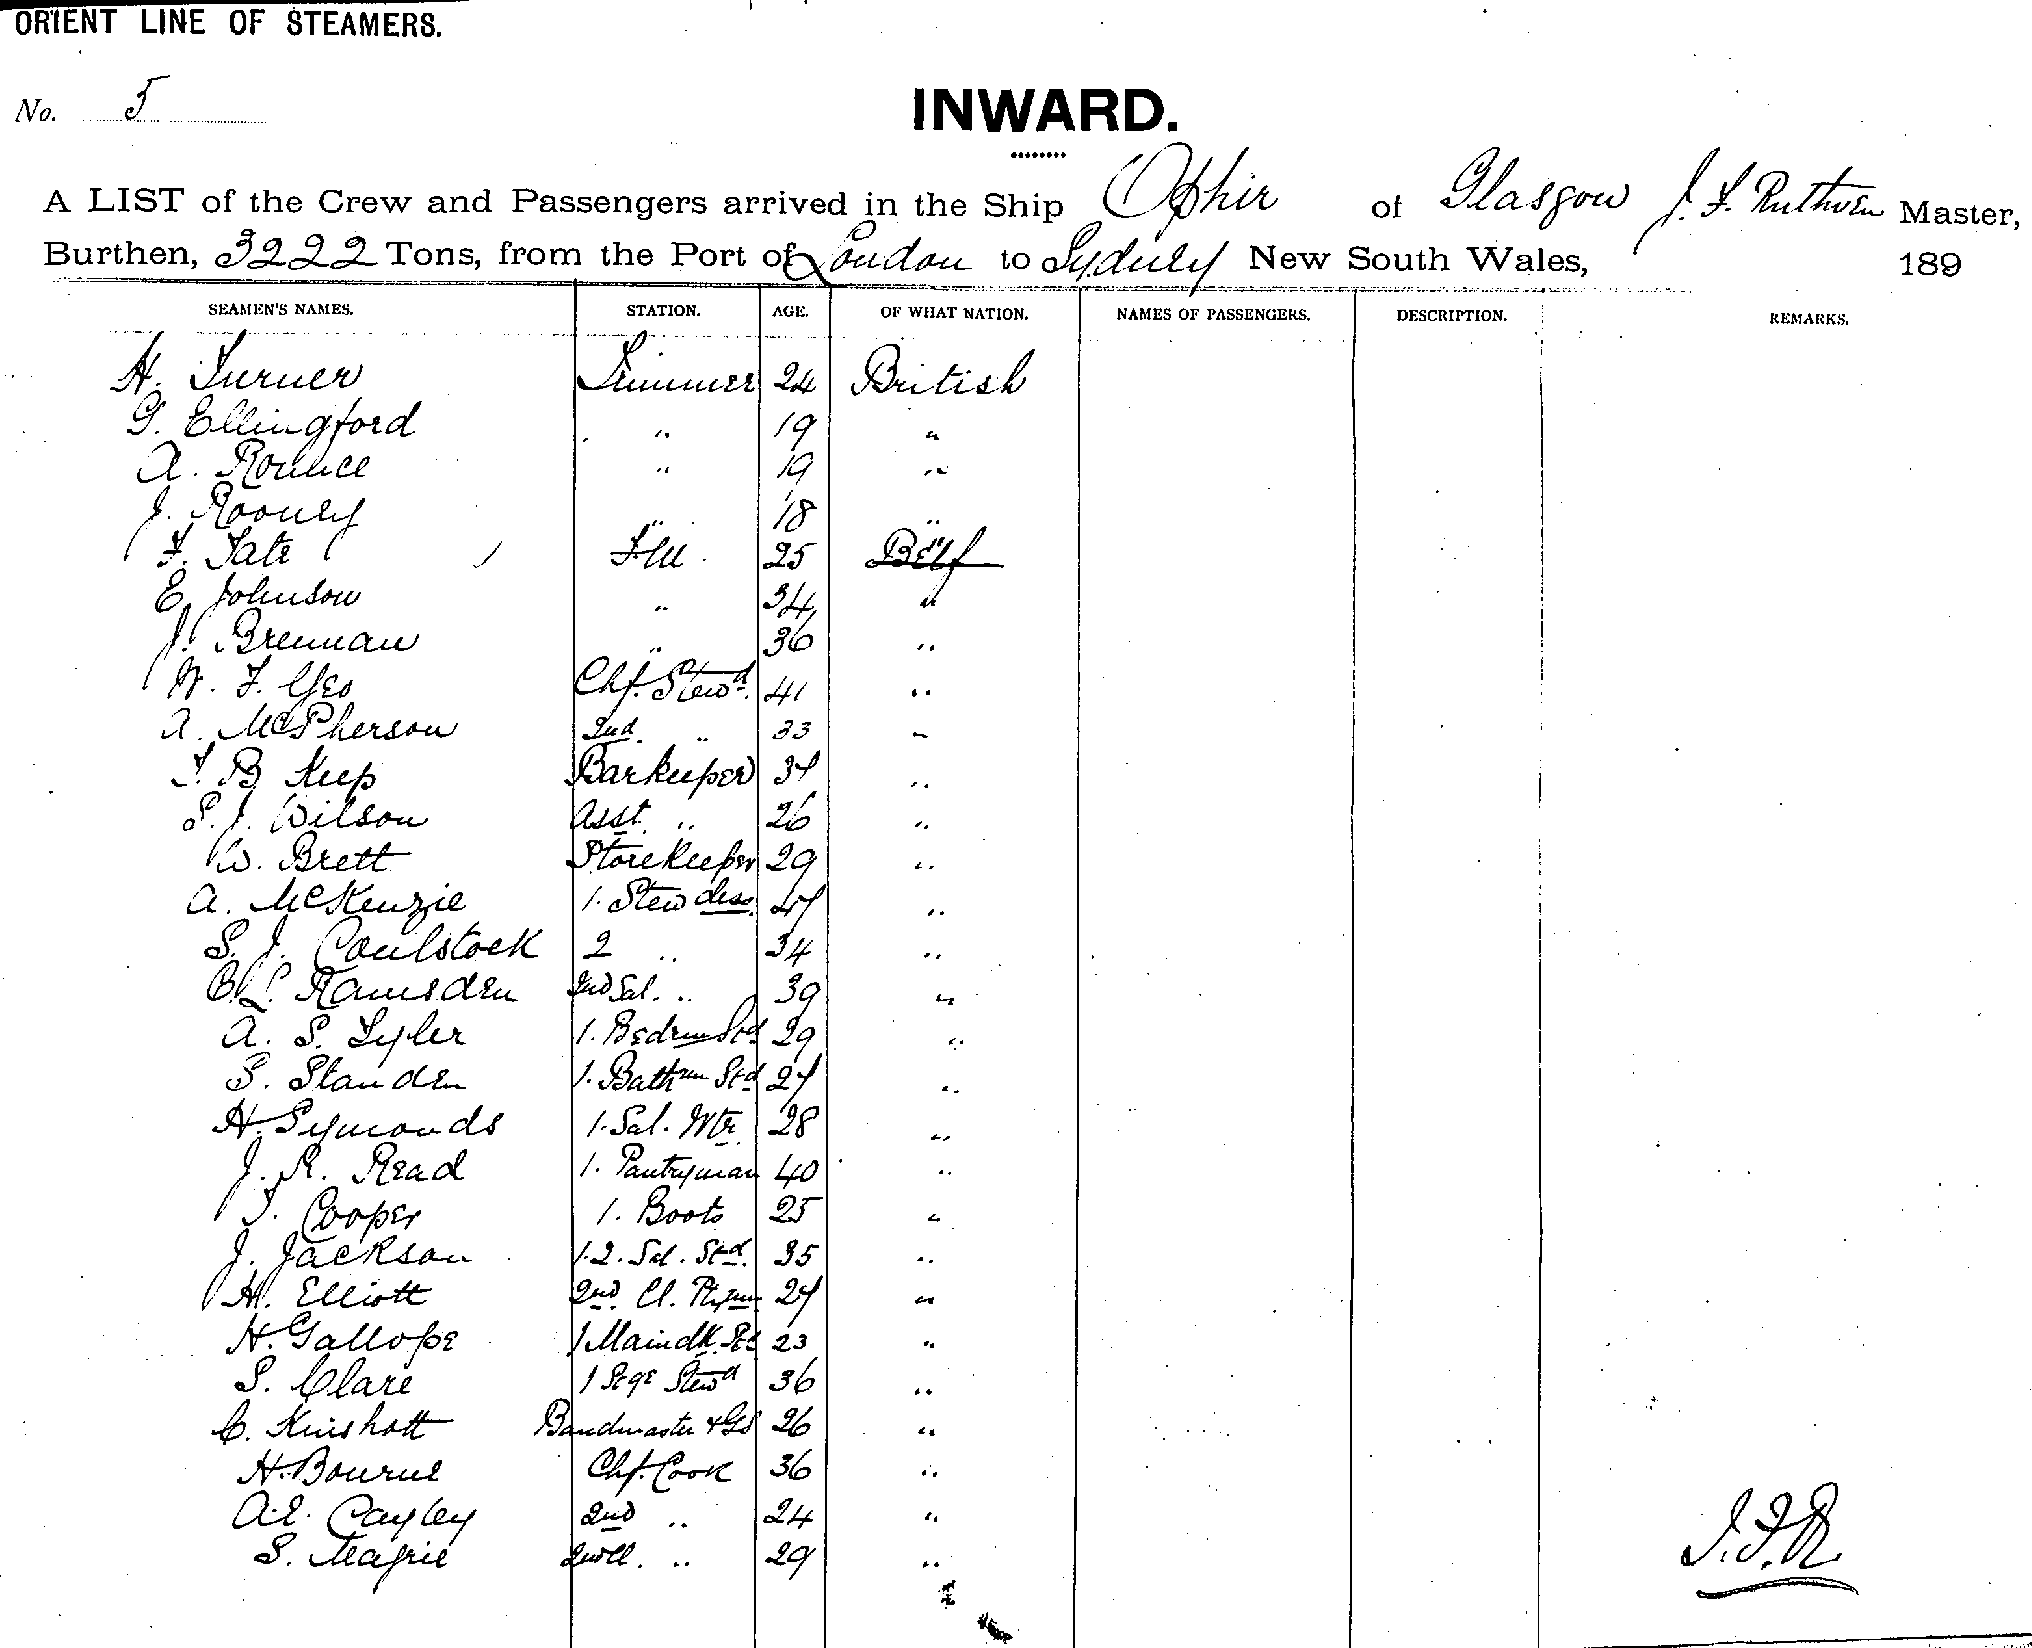 ORIENT LINE OF STEAMERS.
No. 5
INWARD.
A LIST of the Crew and Passengers arrived in the Ship Ophir of Glasgow J. F. Ruthven Master,
Burthen, 3222 Tons, from the Port of London to Sydney New South Wales, 189
SEAMEN'S NAMES. STATION. AGE. OF WHAT NATION. NAMES OF PASSENGERS. DESCRIPTION. REMARKS.
H. Turner Trimmer 24 British
G. Ellingford " 19 "
A. Rounce " 19 "
J. Rooney " 18 "
F. Tate 25
E. Johnson " 34 "
J. Brennan " 36 "
W. F. Geo Chf. Stewd. 41 "
A. McPherson 2nd. " 33 "
T. B. Keep Barkeeper 37 "
S. J. Wilson Asst. " 26 "
W. Brett Storekeeper 29 "
A. McKenzie 1. Stewdess. 47 "
S. J. Coulstock 2 " 34 "
L. Ramsden 2nd Sal. " 39 "
A. S. Tyler 1. Bedrm Std 29 "
S. Standen 1. Bathrm Std 27 "
H. Symonds 1. Sal. Wtr. 28 "
J. R. Read 1. Pantryman 40 "
T. Cooper 1. Boots 25 "
J. Jackson 1. 2. Sal. Std. 35 "
H. Elliott 2nd Cl. 27 "
H. Gallope 1 Maindk. 23 "
S. Clare 1 Stge Stewd 36 "
C. Kinshott Bandmaster & GS 26 "
H. Bourne Chf. Cook 36 "
A.E. Cayley 2nd " 24 "
S. Magrie " 29 "
J.F.R.